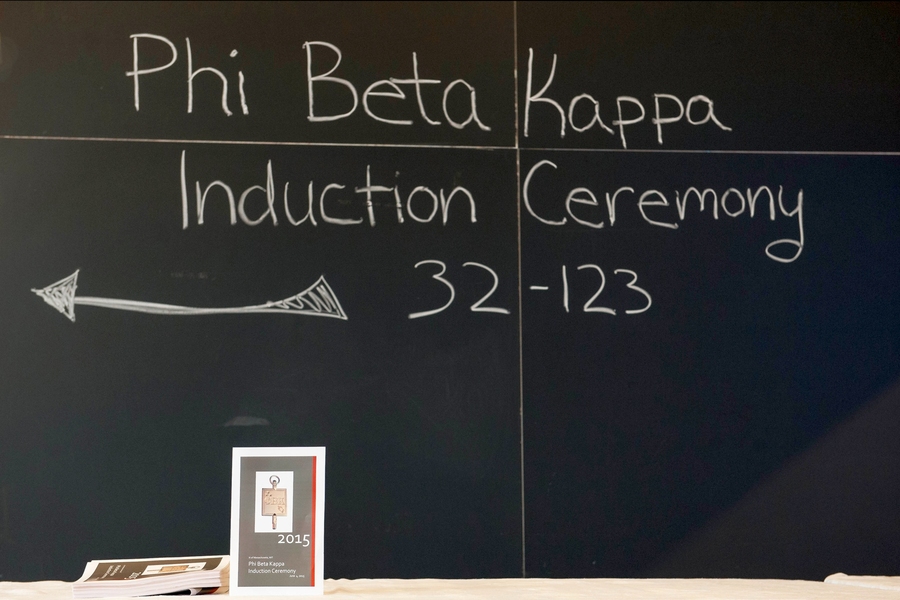 Phi Beta Kappa
Induction Ceremony
32-123
2015
Phi Beta Kappa
Induction Ceremony